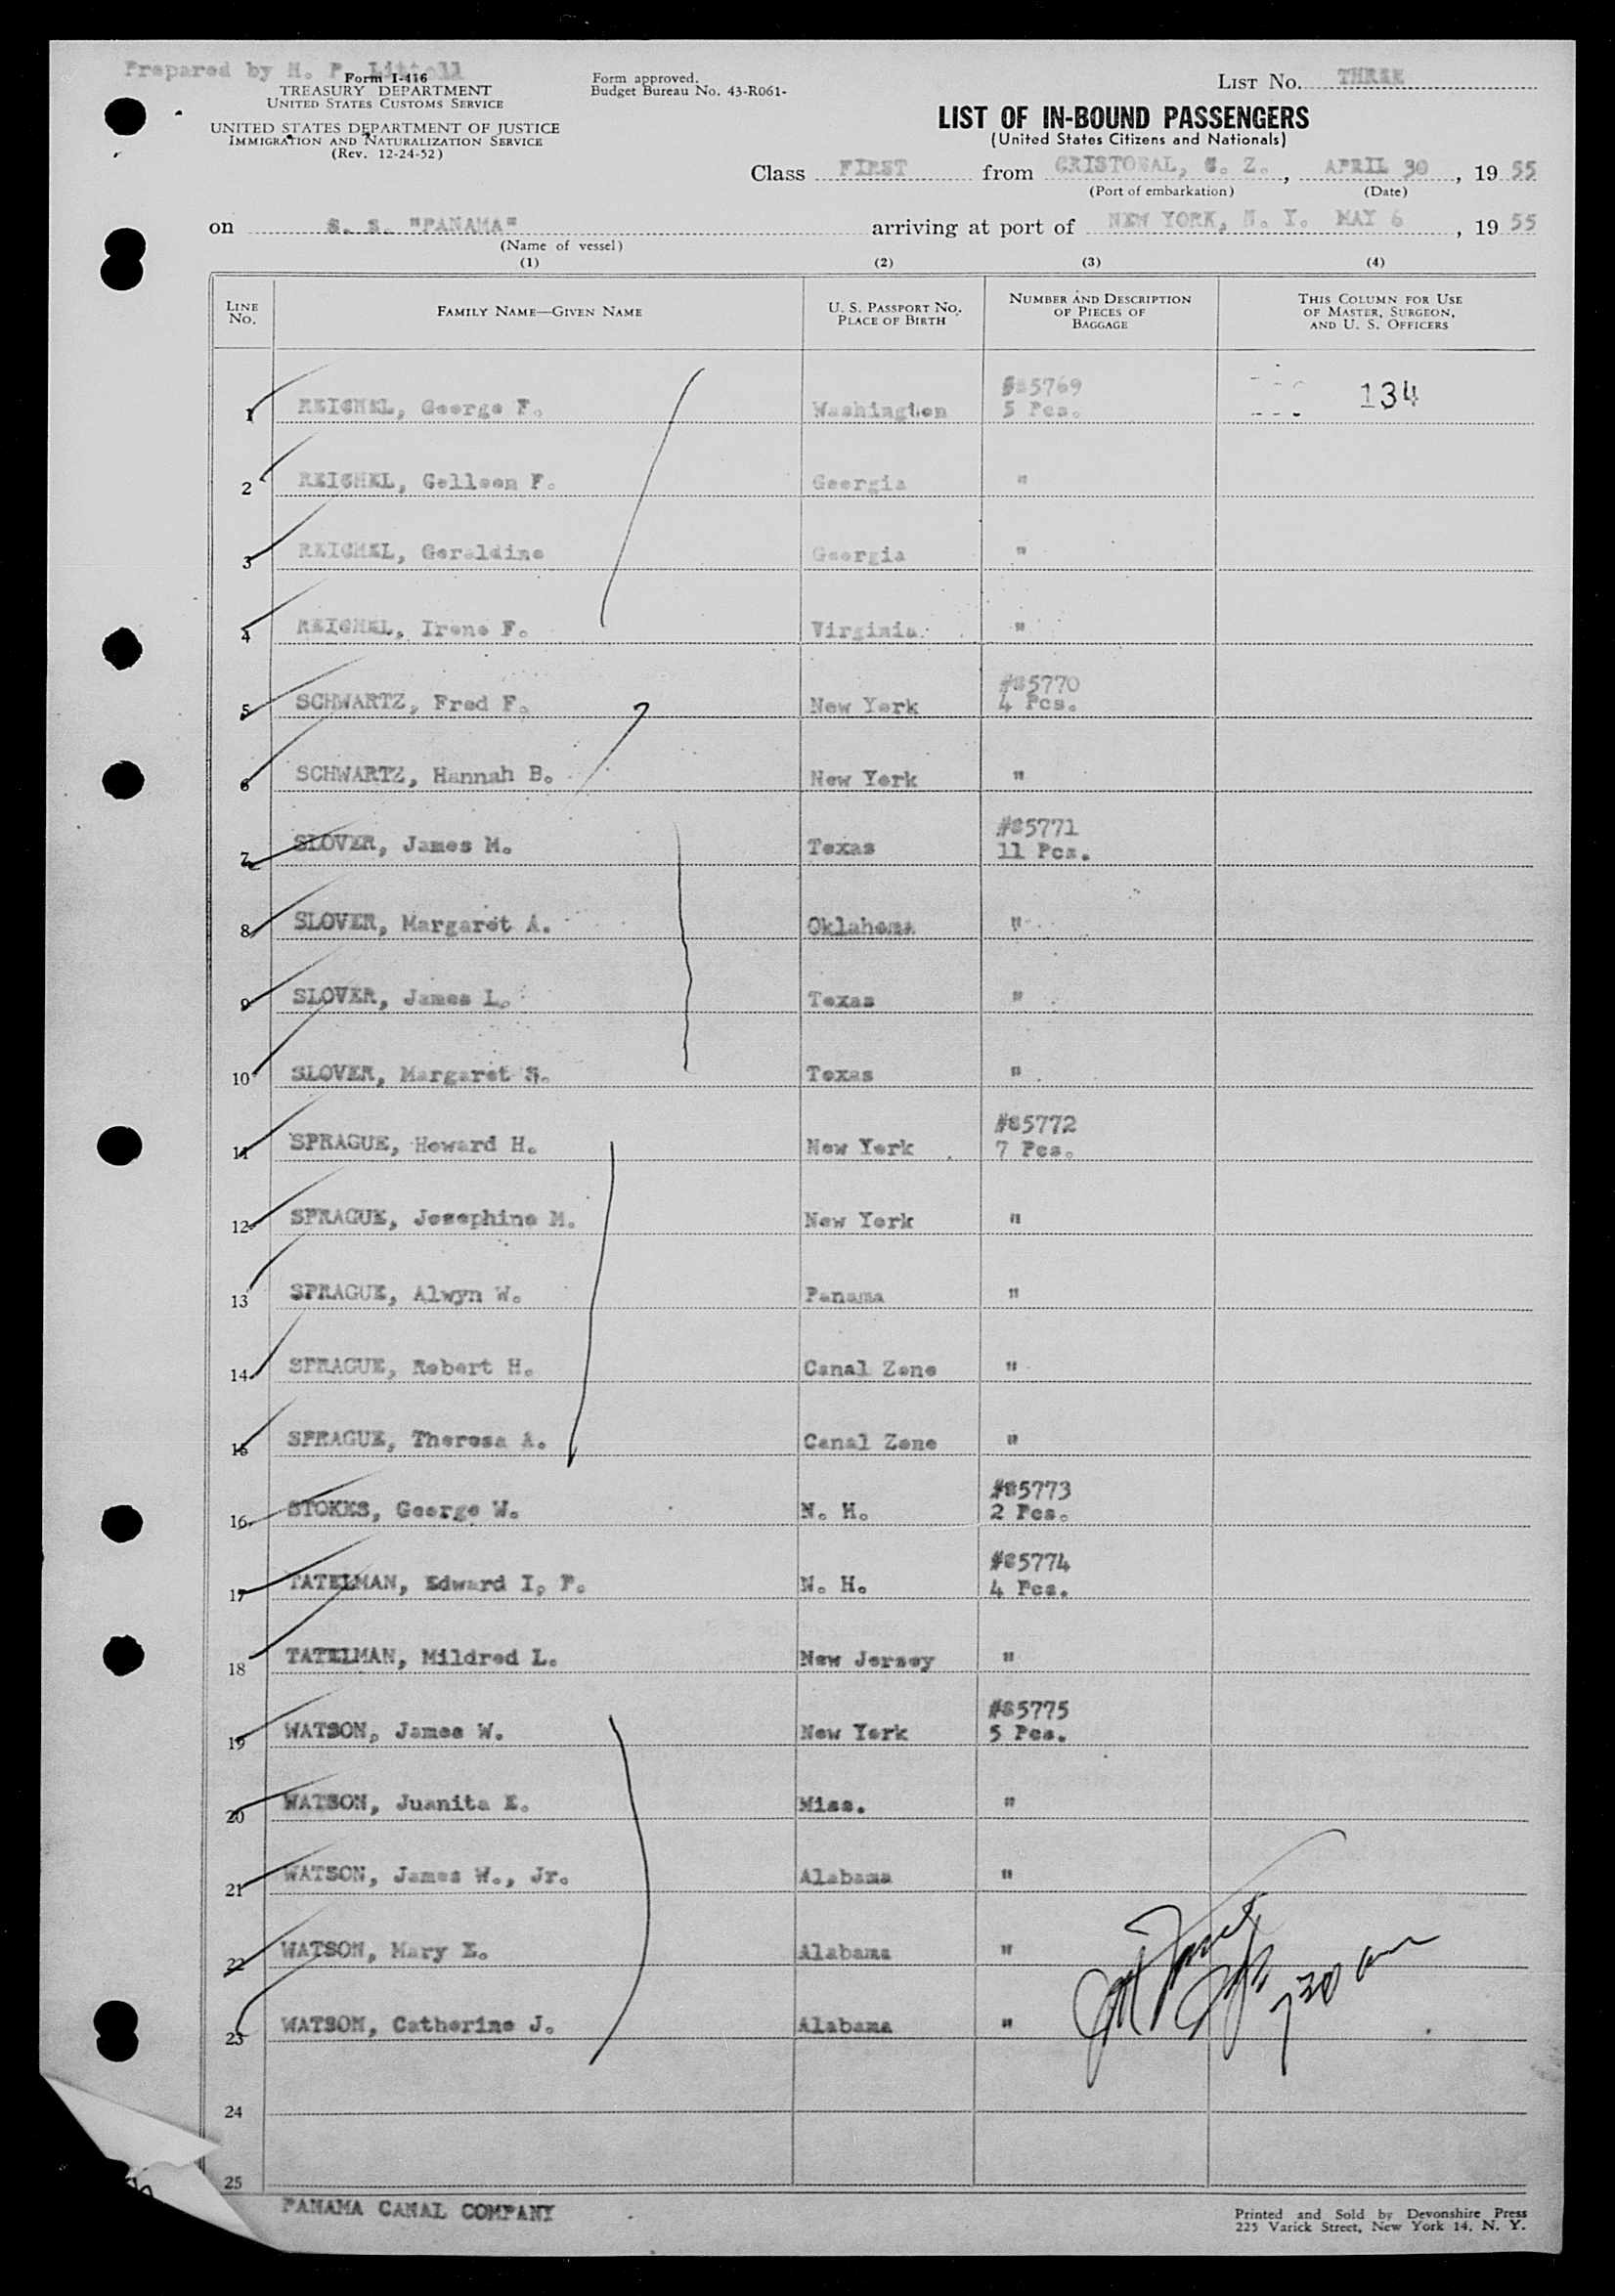 Prepared by H. P. Littell
Form I-416
TREASURY DEPARTMENT
UNITED STATES CUSTOMS SERVICE
UNITED STATES DEPARTMENT OF JUSTICE
IMMIGRATION AND NATURALIZATION SERVICE
(Rev. 12-24-52)
Form approved.
Budget Bureau No. 43-R061-
LIST NO. THREE
LIST OF IN-BOUND PASSENGERS
(United States Citizens and Nationals)
Class FIRST from CRISTOBAL, C. Z., APRIL 30, 1955
(Port of embarkation) (Date)
on S. S. "PANAMA" arriving at port of NEW YORK, N. Y. MAY 6, 1955
(Name of vessel)
(1) (2) (3) (4)
LINE NO. FAMILY NAME—GIVEN NAME U. S. PASSPORT NO. PLACE OF BIRTH NUMBER AND DESCRIPTION OF PIECES OF BAGGAGE THIS COLUMN FOR USE OF MASTER, SURGEON, AND U. S. OFFICERS
#85769 134
1 REICHEL, George F. Washington 5 Pcs.
2 REICHEL, Colleen F. Georgia "
3 REICHEL, Geraldine Georgia "
4 REICHEL, Irene F. Virginia "
#85770
5 SCHWARTZ, Fred F. New York 4 Pcs.
6 SCHWARTZ, Hannah B. New York "
#85771
7 SLOVER, James M. Texas 11 Pcs.
8 SLOVER, Margaret A. Oklahoma "
9 SLOVER, James L. Texas "
10 SLOVER, Margaret S. Texas "
#85772
11 SPRAGUE, Howard H. New York 7 Pcs.
12 SPRAGUE, Josephine M. New York "
13 SPRAGUE, Alwyn W. Panama "
14 SPRAGUE, Robert H. Canal Zone "
15 SPRAGUE, Theresa A. Canal Zone "
#85773
16 STOKES, George W. N. H. 2 Pcs.
#85774
17 TATELMAN, Edward I. P. N. H. 4 Pcs.
18 TATELMAN, Mildred L. New Jersey "
#85775
19 WATSON, James W. New York 5 Pcs.
20 WATSON, Juanita E. Miss. "
21 WATSON, James W., Jr. Alabama "
22 WATSON, Mary E. Alabama "
23 WATSON, Catherine J. Alabama "
7 30 am
24
25
PANAMA CANAL COMPANY
Printed and Sold by Devonshire Press
225 Varick Street, New York 14, N. Y.